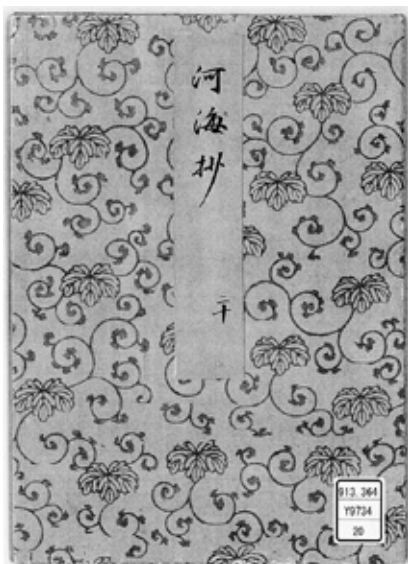 河海抄
二十
913.364
Y9734
20